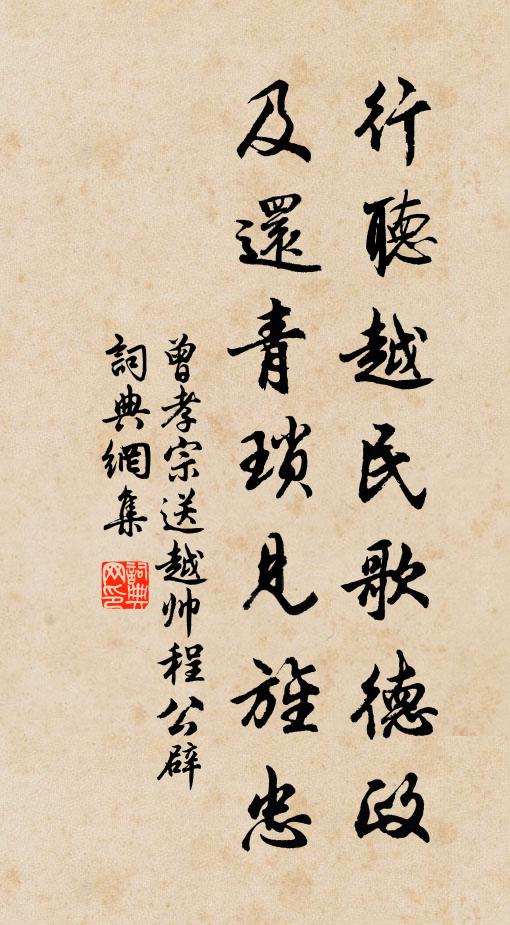 行聽越民歌德政
及還青瑣見旌忠
曾孝宗送越帅程公辟
詞典網集
詞典
网印